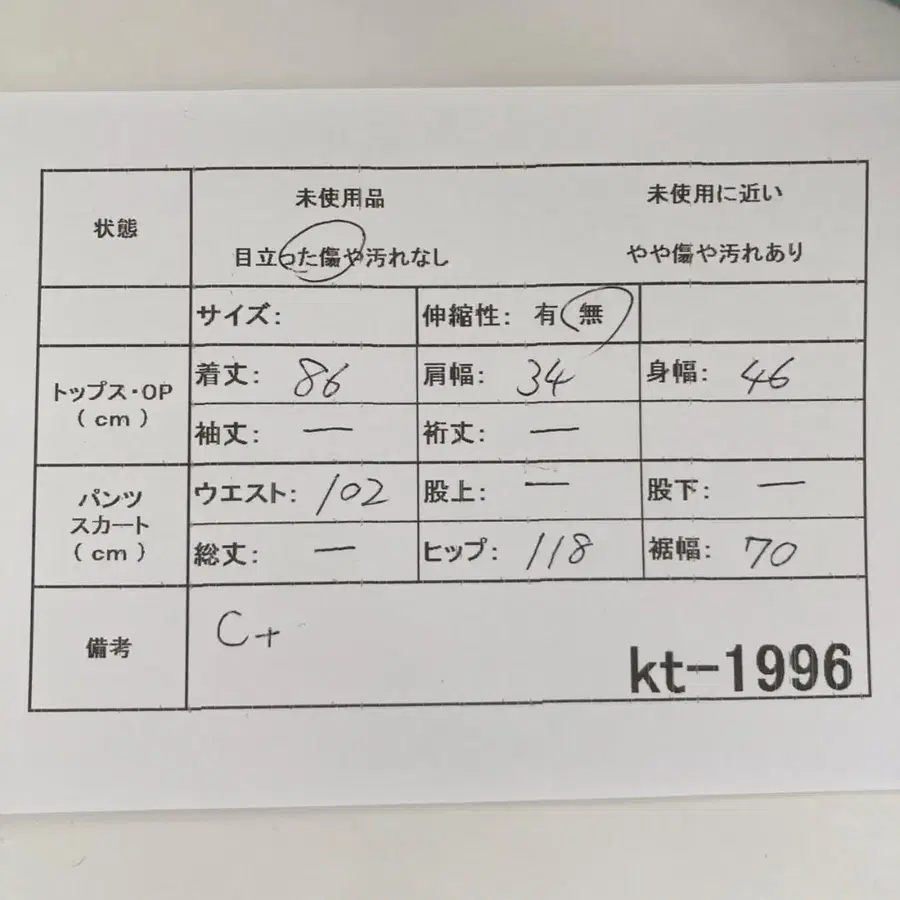 状態
未使用品 未使用に近い
目立った傷や汚れなし やや傷や汚れあり
サイズ: 伸縮性: 有 無
トップス・OP
(cm)
着丈: 86 肩幅: 34 身幅: 46
袖丈: ー 裄丈: ー
パンツ
スカート
(cm)
ウエスト: 102 股上: ー 股下: ー
総丈: ー ヒップ: 118 裾幅: 70
備考
C+
kt-1996